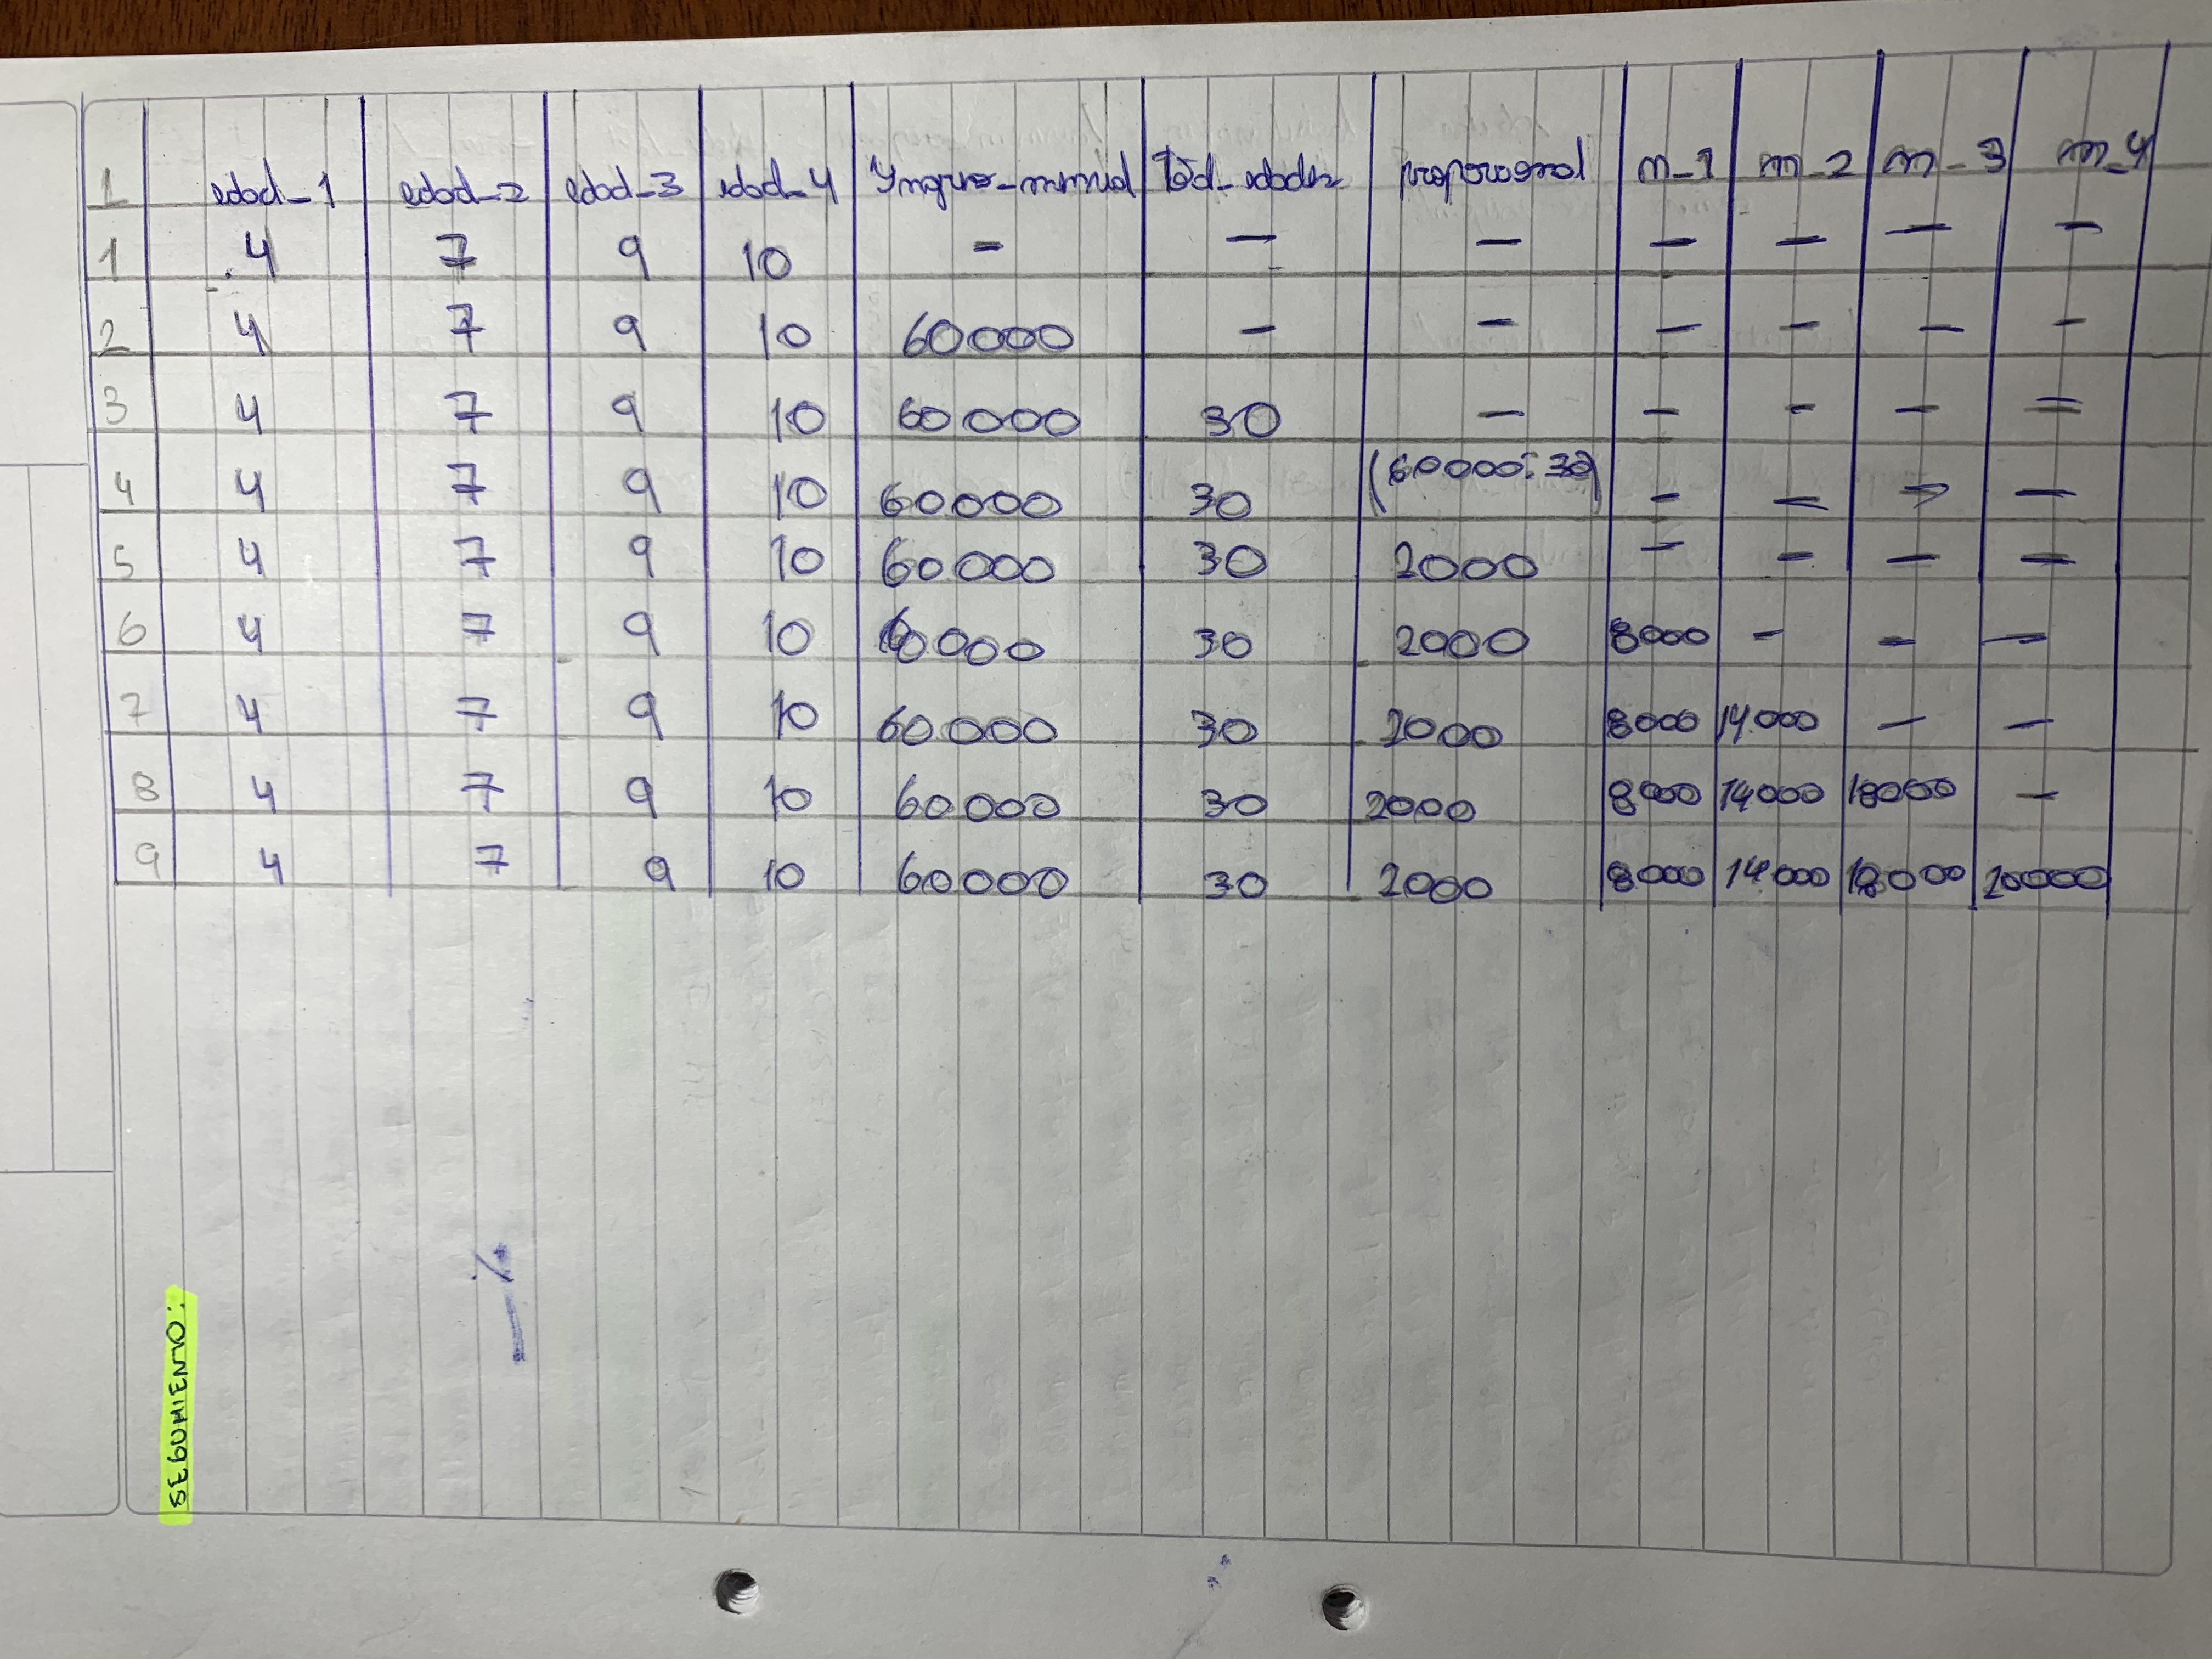 I edad_1 edad_2 edad_3 edad_4 total_edades proporcional m_1 m_2 m_3 m_4
1 4 7 9 10 - - - - - - -
2 4 7 9 10 60000 - - - - - -
3 4 7 9 10 60000 30 - - - - =
4 4 7 9 10 60000 30 (60000:30) - - - -
5 4 7 9 10 60000 30 2000 - - - -
6 4 7 9 10 60000 30 2000 8000 - - -
7 4 7 9 10 60000 30 2000 8000 14000 - -
8 4 7 9 10 60000 30 2000 8000 14000 18000 -
9 4 7 9 10 60000 30 2000 8000 14000 18000 20000
SEGUMIENTO: